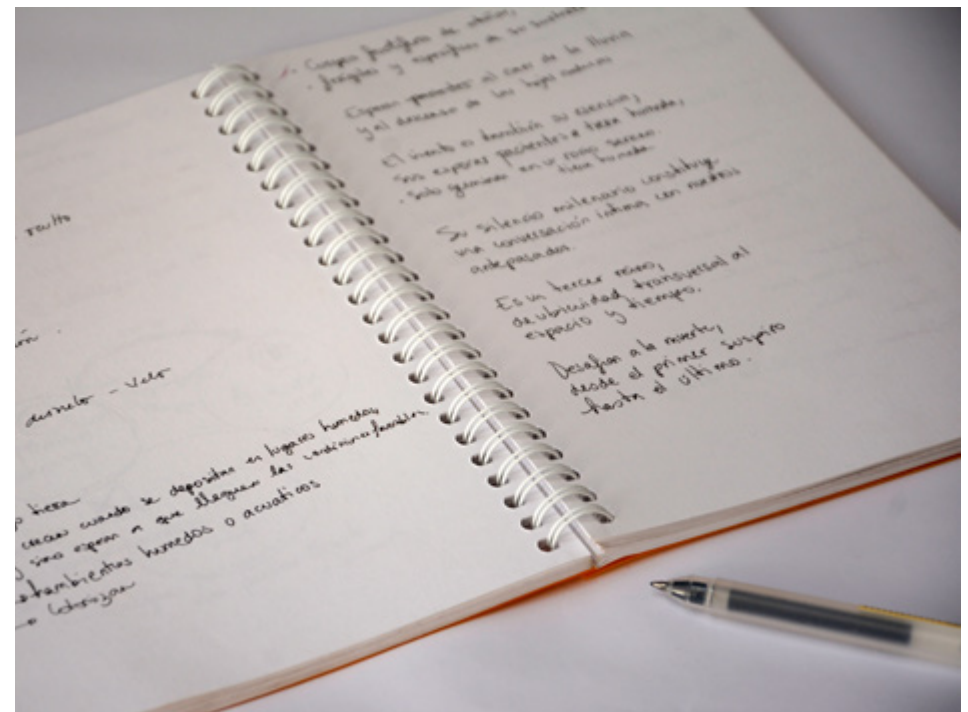 oculto
- velo
tierra
crecen cuando se depositan en lugares humedos,
sino esperan a que lleguen las condiciones favorables
ambientes humedos o acuaticos
colonizan
Cuerpos fructíferos de otoño,
frágiles y específicos de su sustrato
Esperan pacientes al caer de la lluvia
y al descenso de las hojas
El viento su esencia,
sus esporas pacientes a tierra humeda,
solo germinan en un nuevo
tierra humeda
Su silencio milenario constituye
una conversación íntima con nuestros
antepasados.
Es un tercer reino,
de ubicuidad transversal al
espacio y tiempo.
Desafían a la muerte,
desde el primer suspiro
hasta el ultimo.